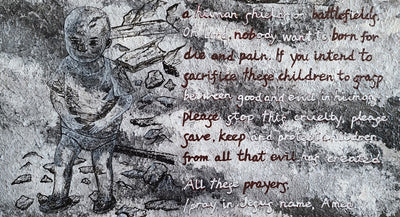 a human shield for battlefields.
nobody want to born for
die and pain. If you intend to
sacrifice these children to grasp
between good and evil in human,
please stop this cruelty, please
save, keep and protect children
from all that evil has created.
All these prayers.
I pray in Jesus name, Amen